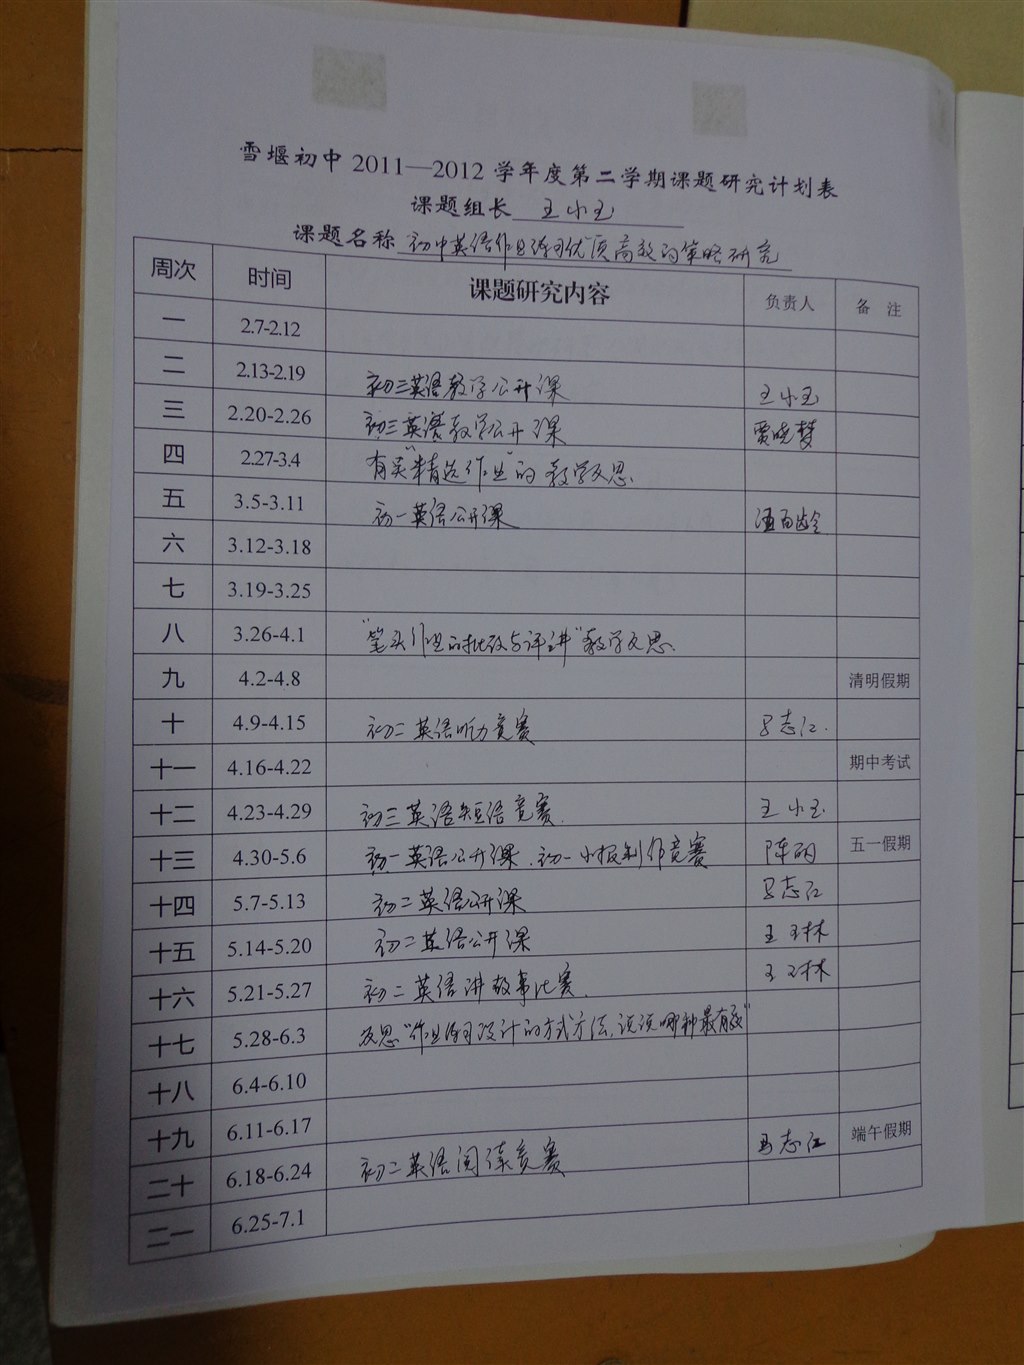 雪堰初中2011—2012学年度第二学期课题研究计划表
课题组长 王小玉
课题名称 初中英语作业练习优质高效的策略研究
周次 时间 课题研究内容 负责人 备 注
一 2.7-2.12
二 2.13-2.19 初三英语教学公开课 王小玉
三 2.20-2.26 初三英语教学公开课 贾晓梦
四 2.27-3.4 有关“精选作业”的教学反思.
五 3.5-3.11 初一英语公开课 百龄
六 3.12-3.18
七 3.19-3.25
八 3.26-4.1 “笔头作业的批改与评讲”教学反思.
九 4.2-4.8 清明假期
十 4.9-4.15 初二英语听力竞赛 马志江.
十一 4.16-4.22 期中考试
十二 4.23-4.29 初三英语短语竞赛. 王小玉
十三 4.30-5.6 初一英语公开课.初一小报制作竞赛 陈明 五一假期
十四 5.7-5.13 初二英语公开课 马志江
十五 5.14-5.20 初二英语公开课 王玉林
十六 5.21-5.27 初二英语讲故事比赛. 王玉林
十七 5.28-6.3 反思“作业练习设计的方式方法,说说哪种最有效”
十八 6.4-6.10
十九 6.11-6.17 端午假期
二十 6.18-6.24 初二英语阅读竞赛 马志江
二一 6.25-7.1